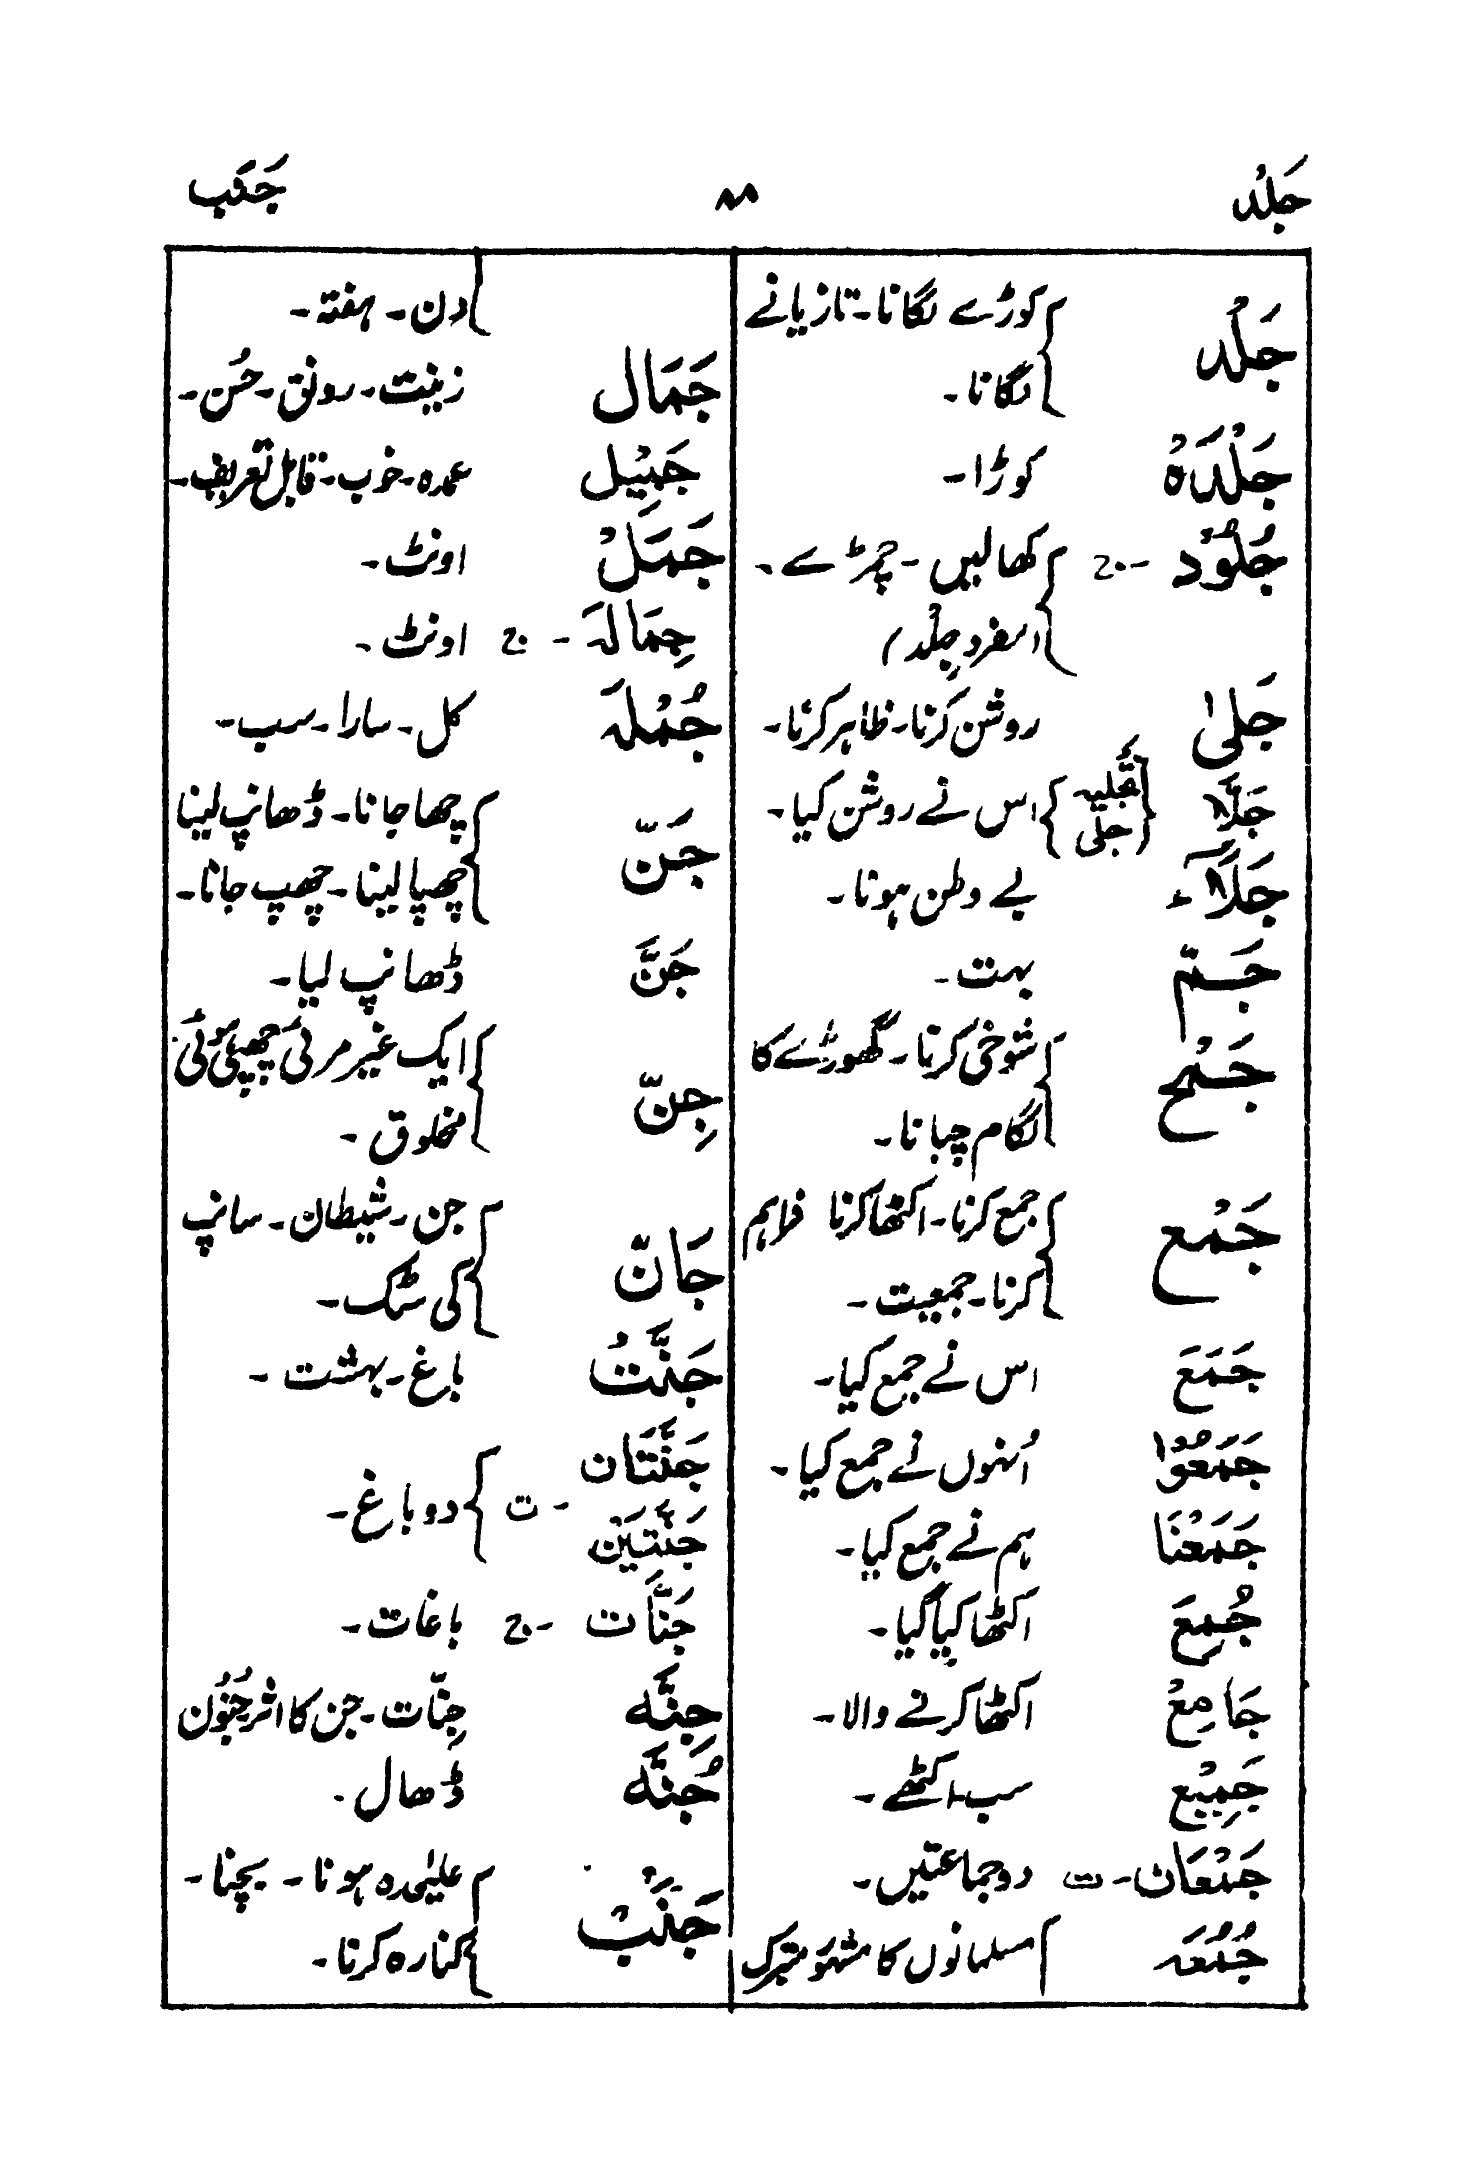 جَلْد ۸۸ جَنْب
جَلْد کوڑے لگانا۔ تازیانے
لگانا۔
جَلْدَہْ کوڑا۔
جُلُوْد ۔ ج کھالیں ۔ چمڑے ۔
(مفرد جِلْد)
جَلیٰ روشن کرنا۔ ظاہر کرنا۔
جَلَّا تجلیہ اس نے روشن کیا۔
جلی
جَلَآءَ بے وطن ہونا۔
جَمّ بہت ۔
جَمْح شوخی کرنا۔ گھوڑے کا
لگام چبانا۔
جَمْع جمع کرنا۔ اکٹھا کرنا فراہم
کرنا۔ جمعیت ۔
جَمَعَ اس نے جمع کیا۔
جَمَعُوْا اُنہوں نے جمع کیا۔
جَمَعْنَا ہم نے جمع کیا۔
جُمِعَ اکٹھا کیا گیا۔
جَامِعْ اکٹھا کرنے والا۔
جَمِیْع سب اکٹھے ۔
جَمْعَان ۔ ت دو جماعتیں۔
جُمُعَہ مسلمانوں کا مشہور متبرک
دن۔ ہفتہ ۔
جَمَال زینت۔ رونق۔ حُسن۔
جَمِیْل عمدہ۔ خوب۔ قابل تعریف۔
جَمَلْ اونٹ۔
جِمَالَہ ۔ ج اونٹ ۔
جُمْلَہ کل۔ سارا۔ سب۔
جَنّ چھا جانا۔ ڈھانپ لینا
چھپا لینا۔ چھپ جانا۔
جَنَّ ڈھانپ لیا۔
جِنّ ایک غیر مرئی چھپی ہوئی
مخلوق ۔
جَانّ جن۔ شیطان۔ سانپ
کی سڑک ۔
جَنَّتُ باغ۔ بہشت ۔
جَنَّتَان
جَنَّتَیْن ۔ ت دو باغ۔
جَنَّات ۔ ج باغات ۔
جِنَّہ جِنّات ۔ جن کا اثر جُنُون
جُنَّہ ڈھال ۔
جَنْبْ علیٰحدہ ہونا۔ بچنا۔
کنارہ کرنا۔